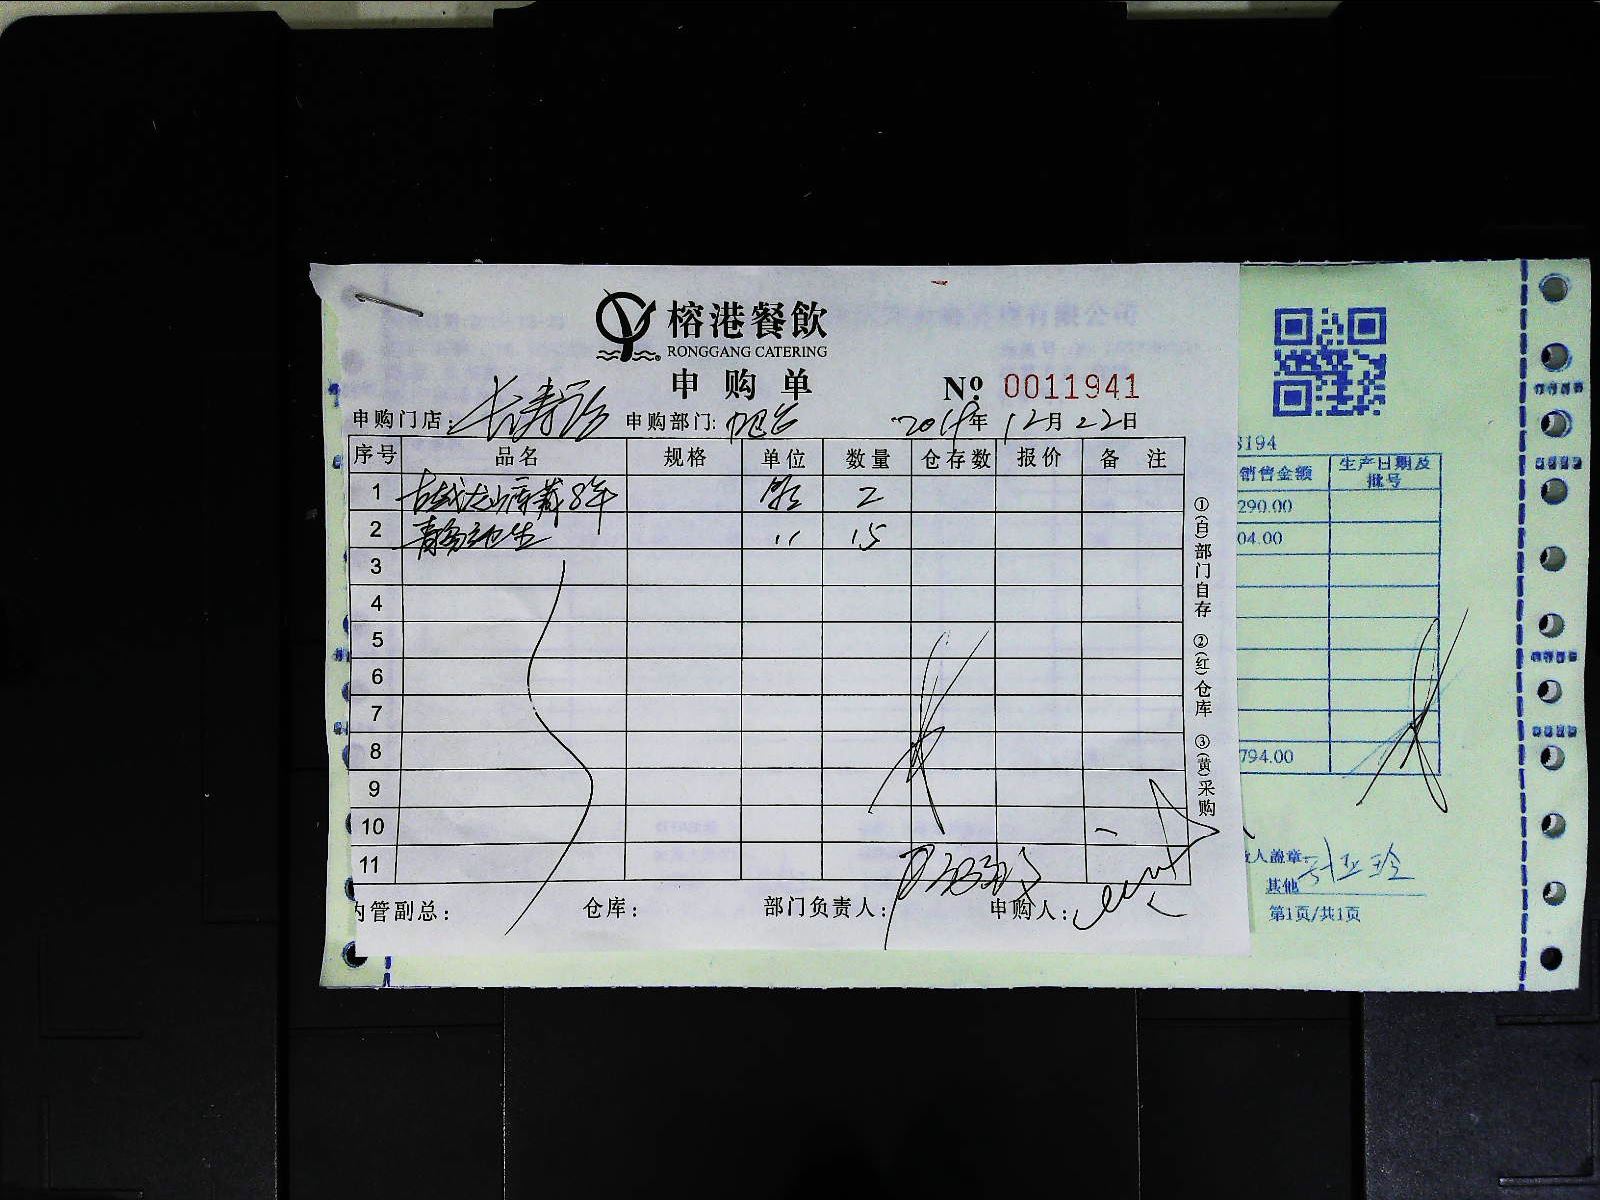 榕港餐飲
RONGGANG CATERING
申购单
Nº 0011941
申购门店: 长寿路 申购部门: 吧台 2019年12月22日
序号 品名 规格 单位 数量 仓存数 报价 备注
1 古越龙山库藏8年 2
2 15
3
4
5
6
7
8
9
10
11
内管副总: 仓库: 部门负责人: 申购人:
①(白)部门自存 ②(红)仓库 ③(黄)采购
8194
销售金额 生产日期及批号
290.00
04.00
794.00
人盖章:
其他
第1页/共1页